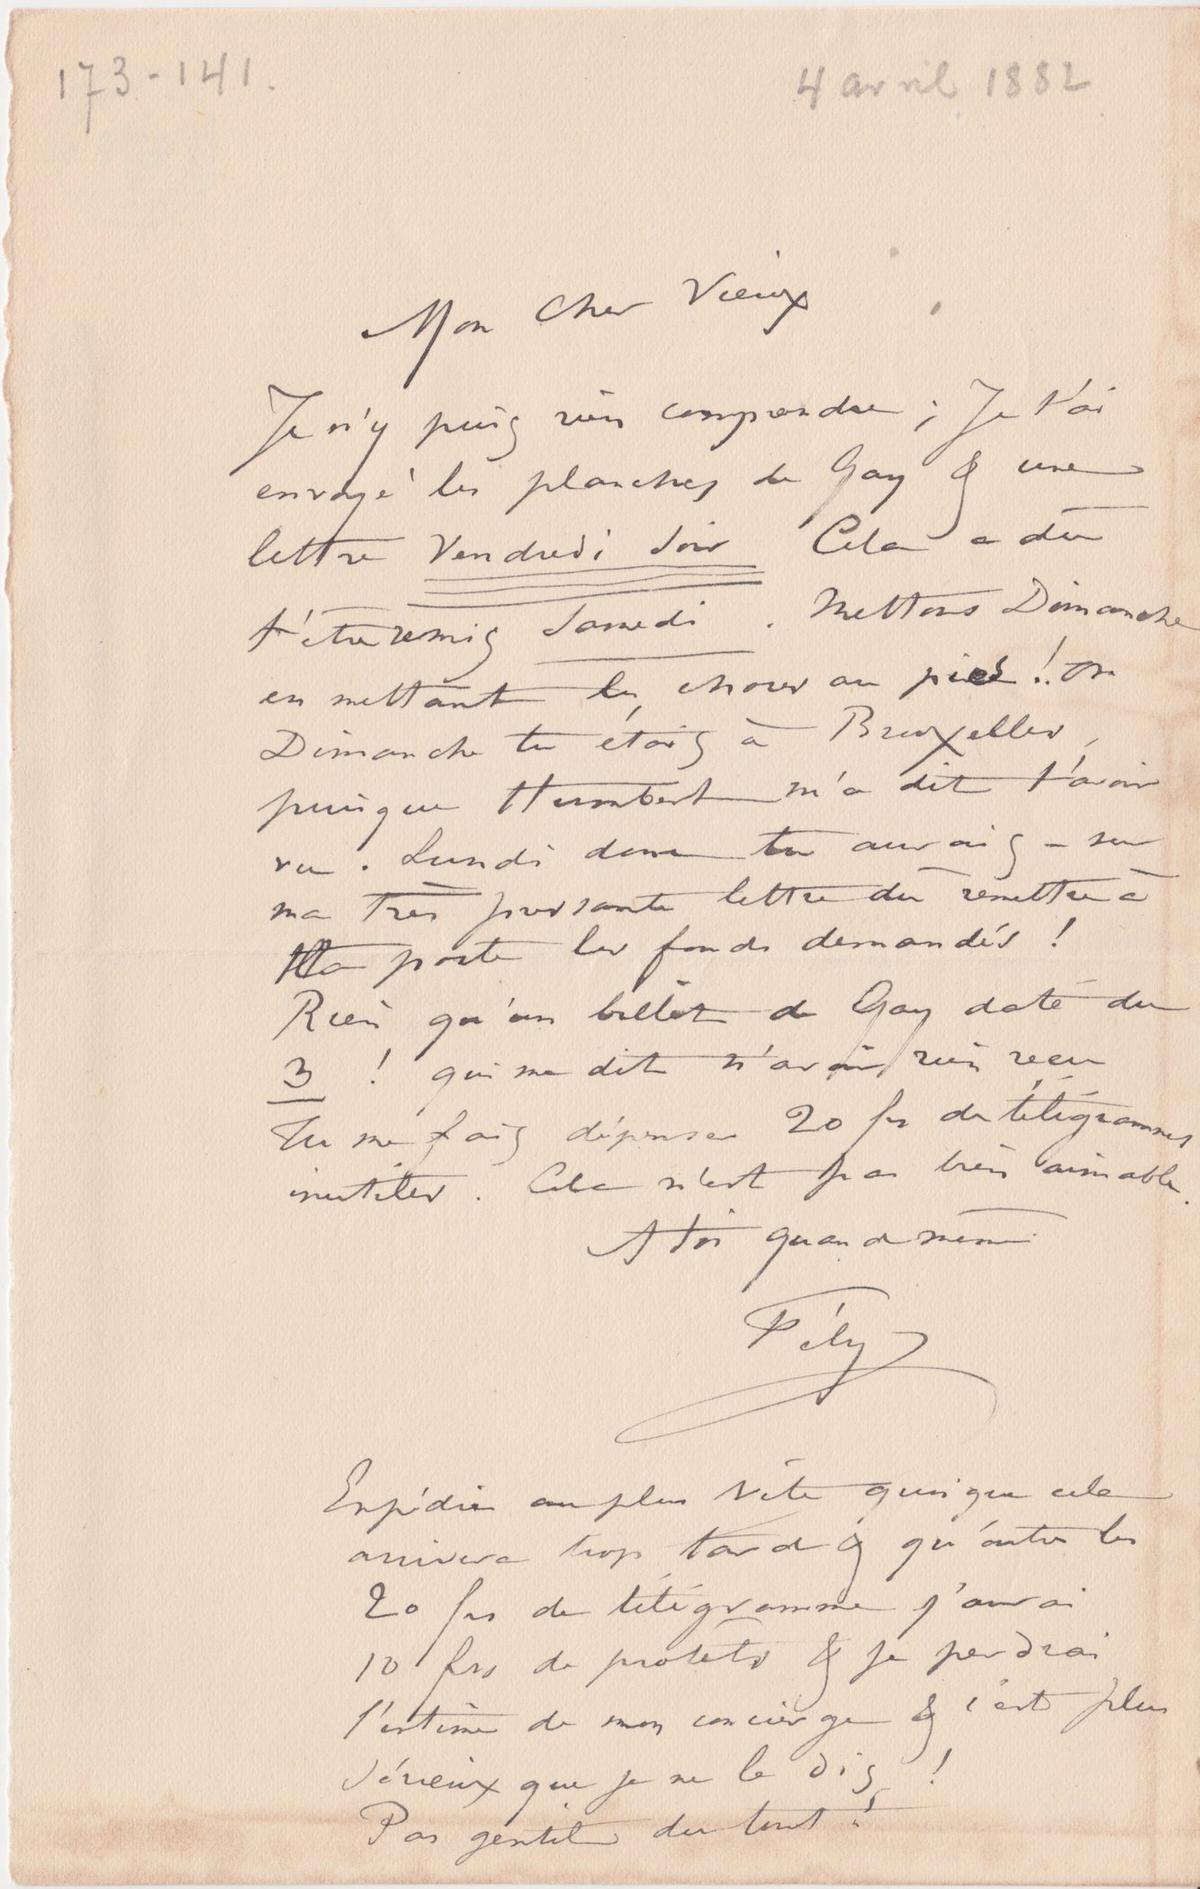 173-141.
4 avril 1882
Mon Cher Vieux
Je n'y puis rien comprendre ; Je t'ai
envoyé les planches de Gay & une
lettre Vendredi Soir Cela a dû
t'être remis Samedi . Mettons Dimanche
en mettant les choses au pied ! . On
Dimanche tu étais à Bruxelles,
puisque Humbert m'a dit t'avoir
vu . Lundi donc tu aurais - sur
ma très pressante lettre dû remettre à
la poste les fonds demandés !
Rien qu'un billet de Gay daté du
3 ! qui me dit n'avoir rien reçu
Tu me fais dépenser 20 frs de télégrammes
inutiles . Cela n'est pas bien aimable.
A toi quand même
Fély
Expédie au plus vite quoique cela
arrivera trop tard & qu'outre les
20 frs de télégramme j'aurai
10 frs de protêts & je perdrai
l'estime de mon concierge & c'est plus
sérieux que je ne le dis !
Pas gentil du tout !